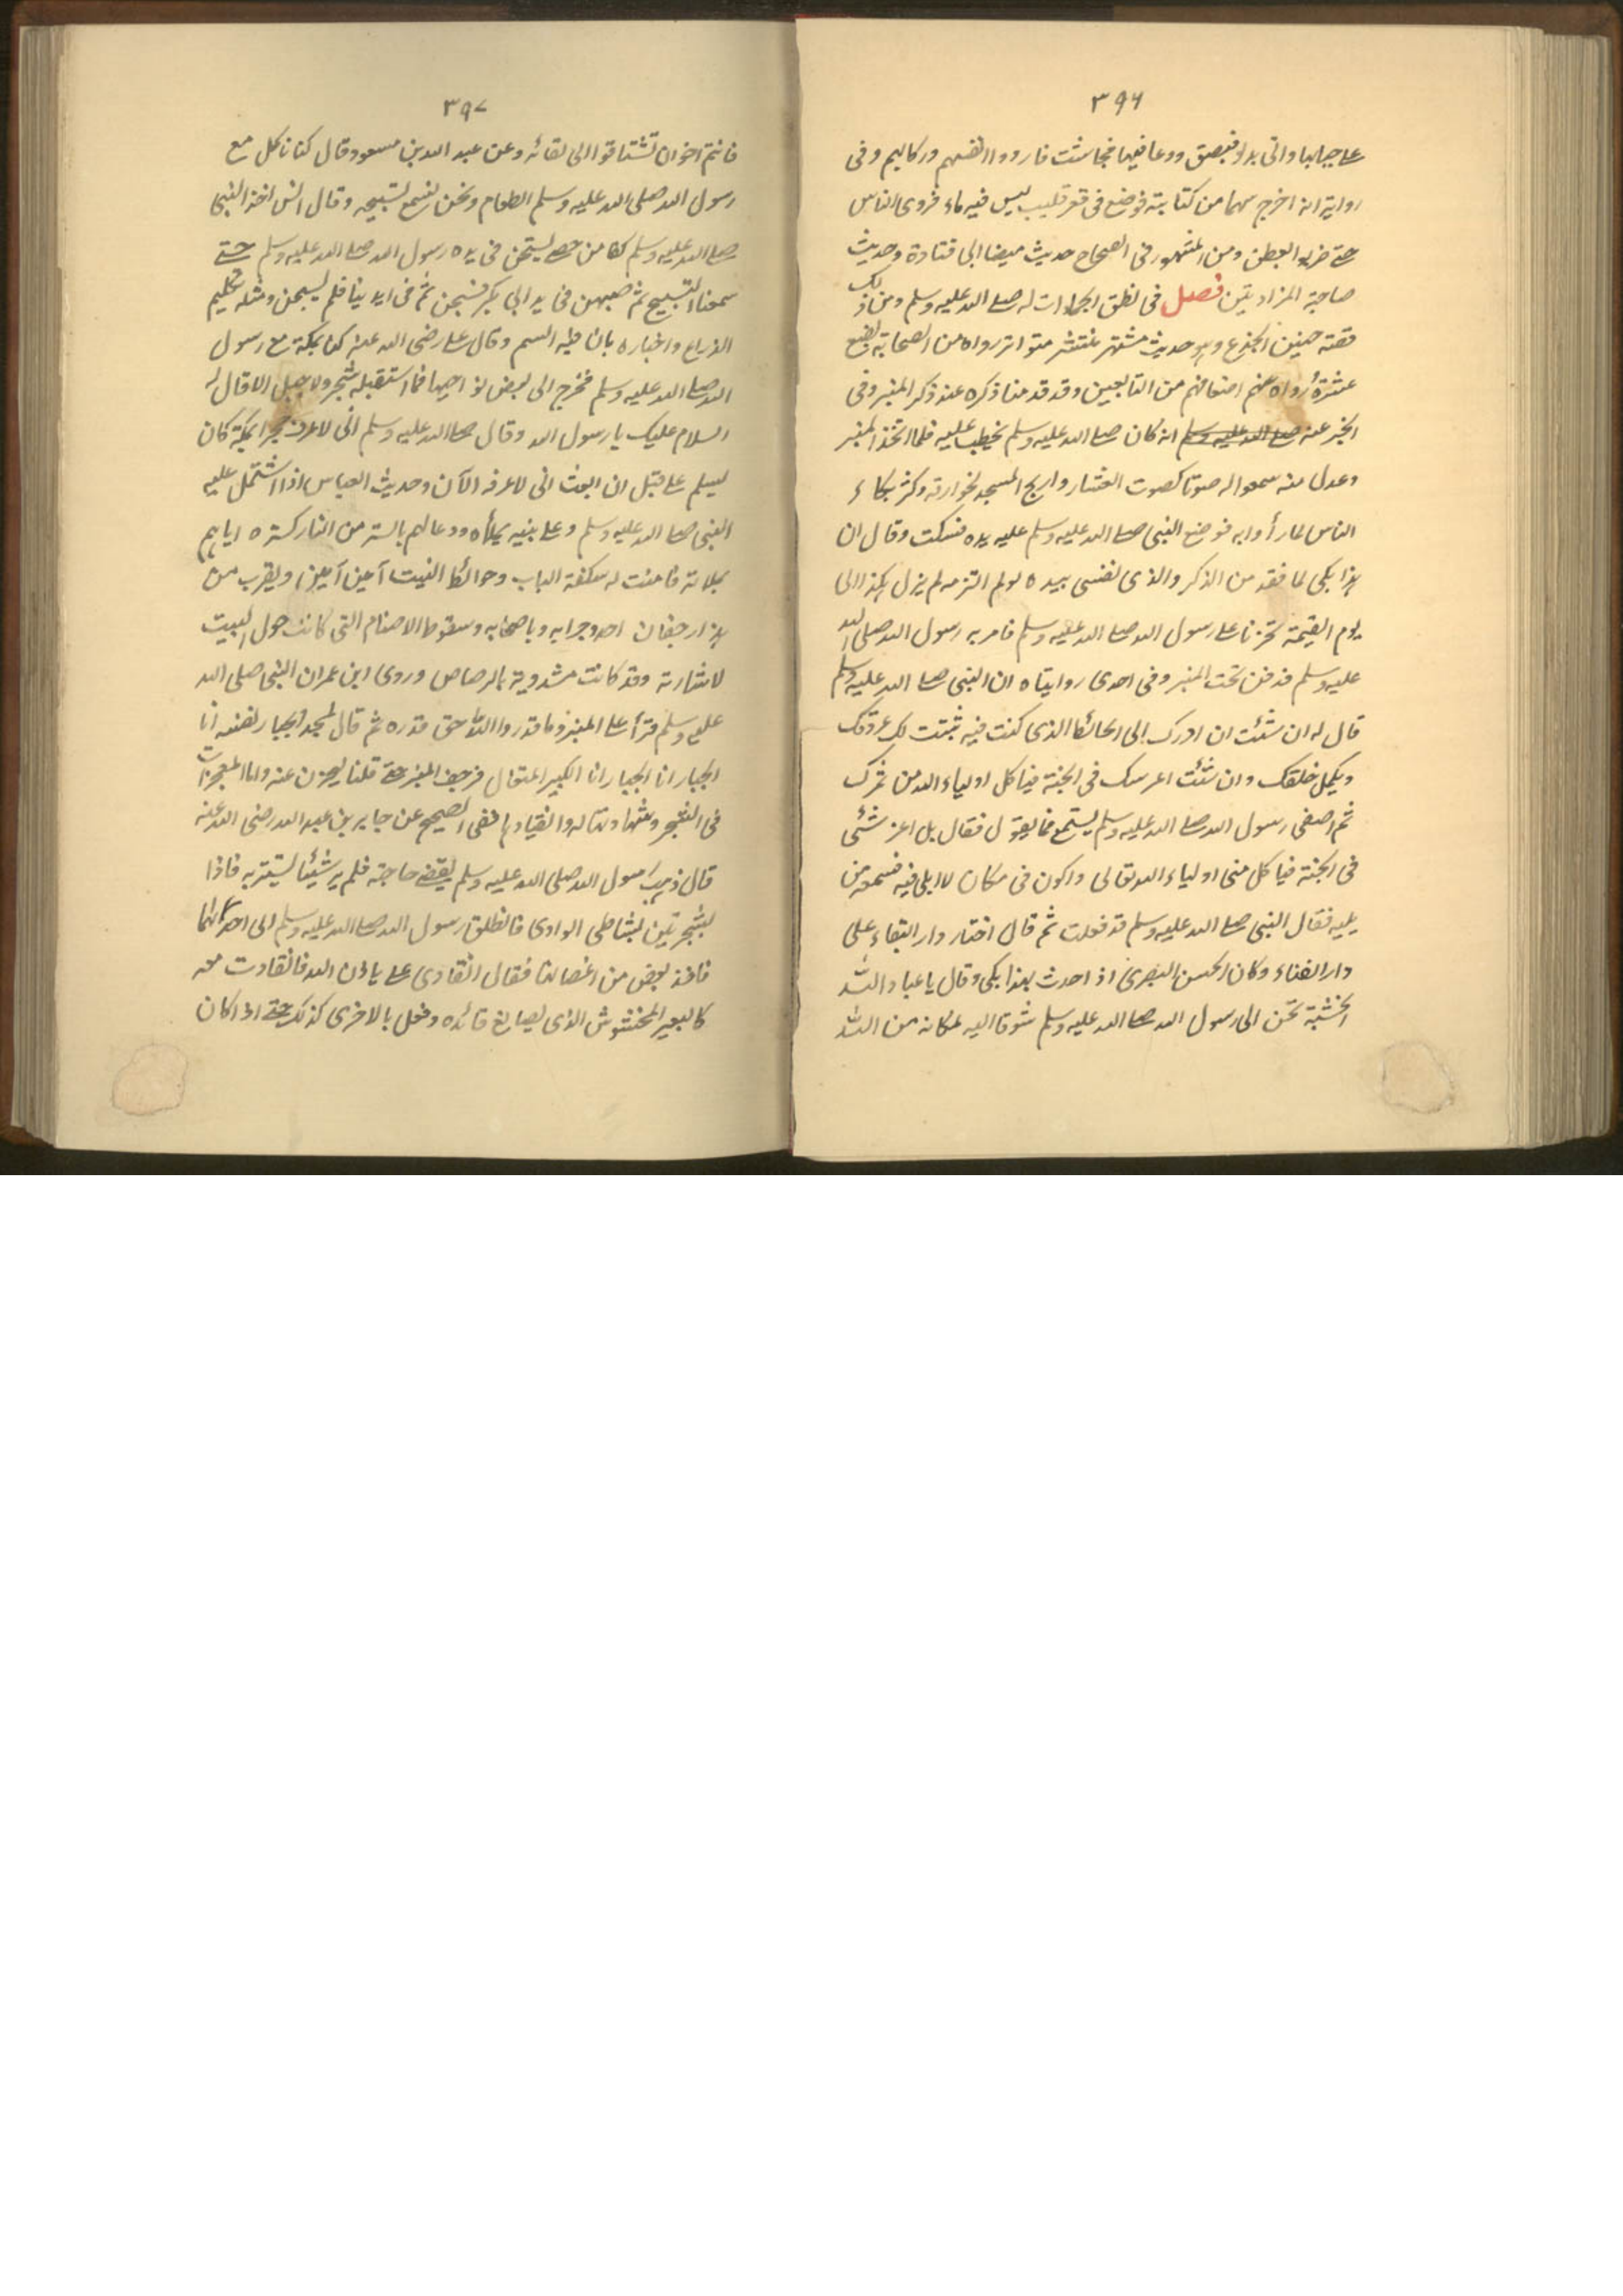 ٣٩٦
على جبالها واتى بدلو فبصق ودعا فيها فجاشت فارووا انفسهم وركابهم وفى
رواية انه اخرج سهما من كنانته فوضع فى قعر قليب ليس فيه ماء فروى الناس
حتى ضربوا بعطن ومن المشهور فى الصحاح حديث ميضا ابى قتادة وحديث
صاحبة المزادتين فصل فى نطق الجمادات له صلى الله عليه وسلم ومن ذلك
قصة حنين الجذع وهو حديث مشتهر منتشر متواتر رواه من الصحابة بضع
عشرة رواه عنهم اضعافهم من التابعين وقد قدمنا ذكره عند ذكر المنبر وفى
الخبر عنه صلى الله عليه وسلم انه كان صلى الله عليه وسلم يخطب عليه فلما اتخذ المنبر
وعدل منه سمعوا له صوتا كصوت العشار وارتج المسجد لخوارته وكثر بكاء
الناس لما رأوا به فوضع النبى صلى الله عليه وسلم عليه يده فسكت وقال ان
هذا بكى لما فقد من الذكر والذى نفسى بيده لو لم التزمه لم يزل هكذا الى
يوم القيمة تحزنا على رسول الله صلى الله عليه وسلم فامر به رسول الله صلى الله
عليه وسلم فدفن تحت المنبر وفى احدى رواياته ان النبى صلى الله عليه وسلم
قال له ان شئت ان اردك الى الحائط الذى كنت فيه تثبت لك عروقك
ويكمل خلقك وان شئت اغرسك فى الجنة فياكل اولياء الله من ثمرك
ثم اصغى رسول الله صلى الله عليه وسلم يستمع فما يقول فقال بل اغرسنى
فى الجنة فياكل منى اولياء الله تعالى واكون فى مكان لا ابلى فيه فسمعه من
يليه فقال النبى صلى الله عليه وسلم قد فعلت ثم قال اختار دار البقاء على
دار الفناء وكان الحسن البصرى اذا حدث بهذا بكى وقال يا عباد الله
الخشبة تحن الى رسول الله صلى الله عليه وسلم شوقا اليه لمكانه من الله
٣٩٧
فانتم اخوان تشتاقوا الى لقائه وعن عبد الله بن مسعود قال كنا ناكل مع
رسول الله صلى الله عليه وسلم الطعام ونحن نسمع تسبيحه وقال انس اخذ النبى
صلى الله عليه وسلم كفا من حصى يسبحن فى يده رسول الله صلى الله عليه وسلم حتى
سمعنا التسبيح ثم صبهن فى يد ابى بكر فسبحن ثم فى ايدينا فلم يسبحن ومثله تكليم
الذراع واخباره بان فيه السم وقال على رضى الله عنه كنا بمكة مع رسول
الله صلى الله عليه وسلم فخرج الى بعض نواحيها فما استقبله شجر ولا جبل الا قال له
السلام عليك يا رسول الله وقال صلى الله عليه وسلم انى لاعرف حجرا بمكة كان
يسلم على قبل ان ابعث انى لاعرفه الآن وحديث العباس اذا اشتمل عليه
النبى صلى الله عليه وسلم وعلى بنيه بملأة ودعا لهم بالستر من النار كستره اياهم
بملائته فامنت له سكفة الباب وحوائط البيت آمين آمين ويقرب من
هذا رجفان احد وحرا به وباصحابه وسقوط الاصنام التى كانت حول البيت
لاشارته وقد كانت مشدودة بالرصاص وروى ابن عمر ان النبى صلى الله
عليه وسلم قرأ على المنبر وما قدروا الله حق قدره ثم قال يمجد الجبار نفسه انا
الجبار انا الجبار انا الكبير المتعال فرجف المنبر حتى قلنا ليخرن عنه واما المعجزات
فى الشجر وشهادتها له وانقيادها ففى الصحيح عن جابر بن عبد الله رضى الله عنه
قال ذهب رسول الله صلى الله عليه وسلم يقضى حاجته فلم ير شيئا يستتر به فاذا
بشجرتين بشاطى الوادى فانطلق رسول الله صلى الله عليه وسلم الى احداهما
فاخذ بعض من اغصانها فقال انقادى على باذن الله فانقادت معه
كالبعير المخشوش الذى يصانع قائده وفعل بالاخرى كذلك حتى اذا كان